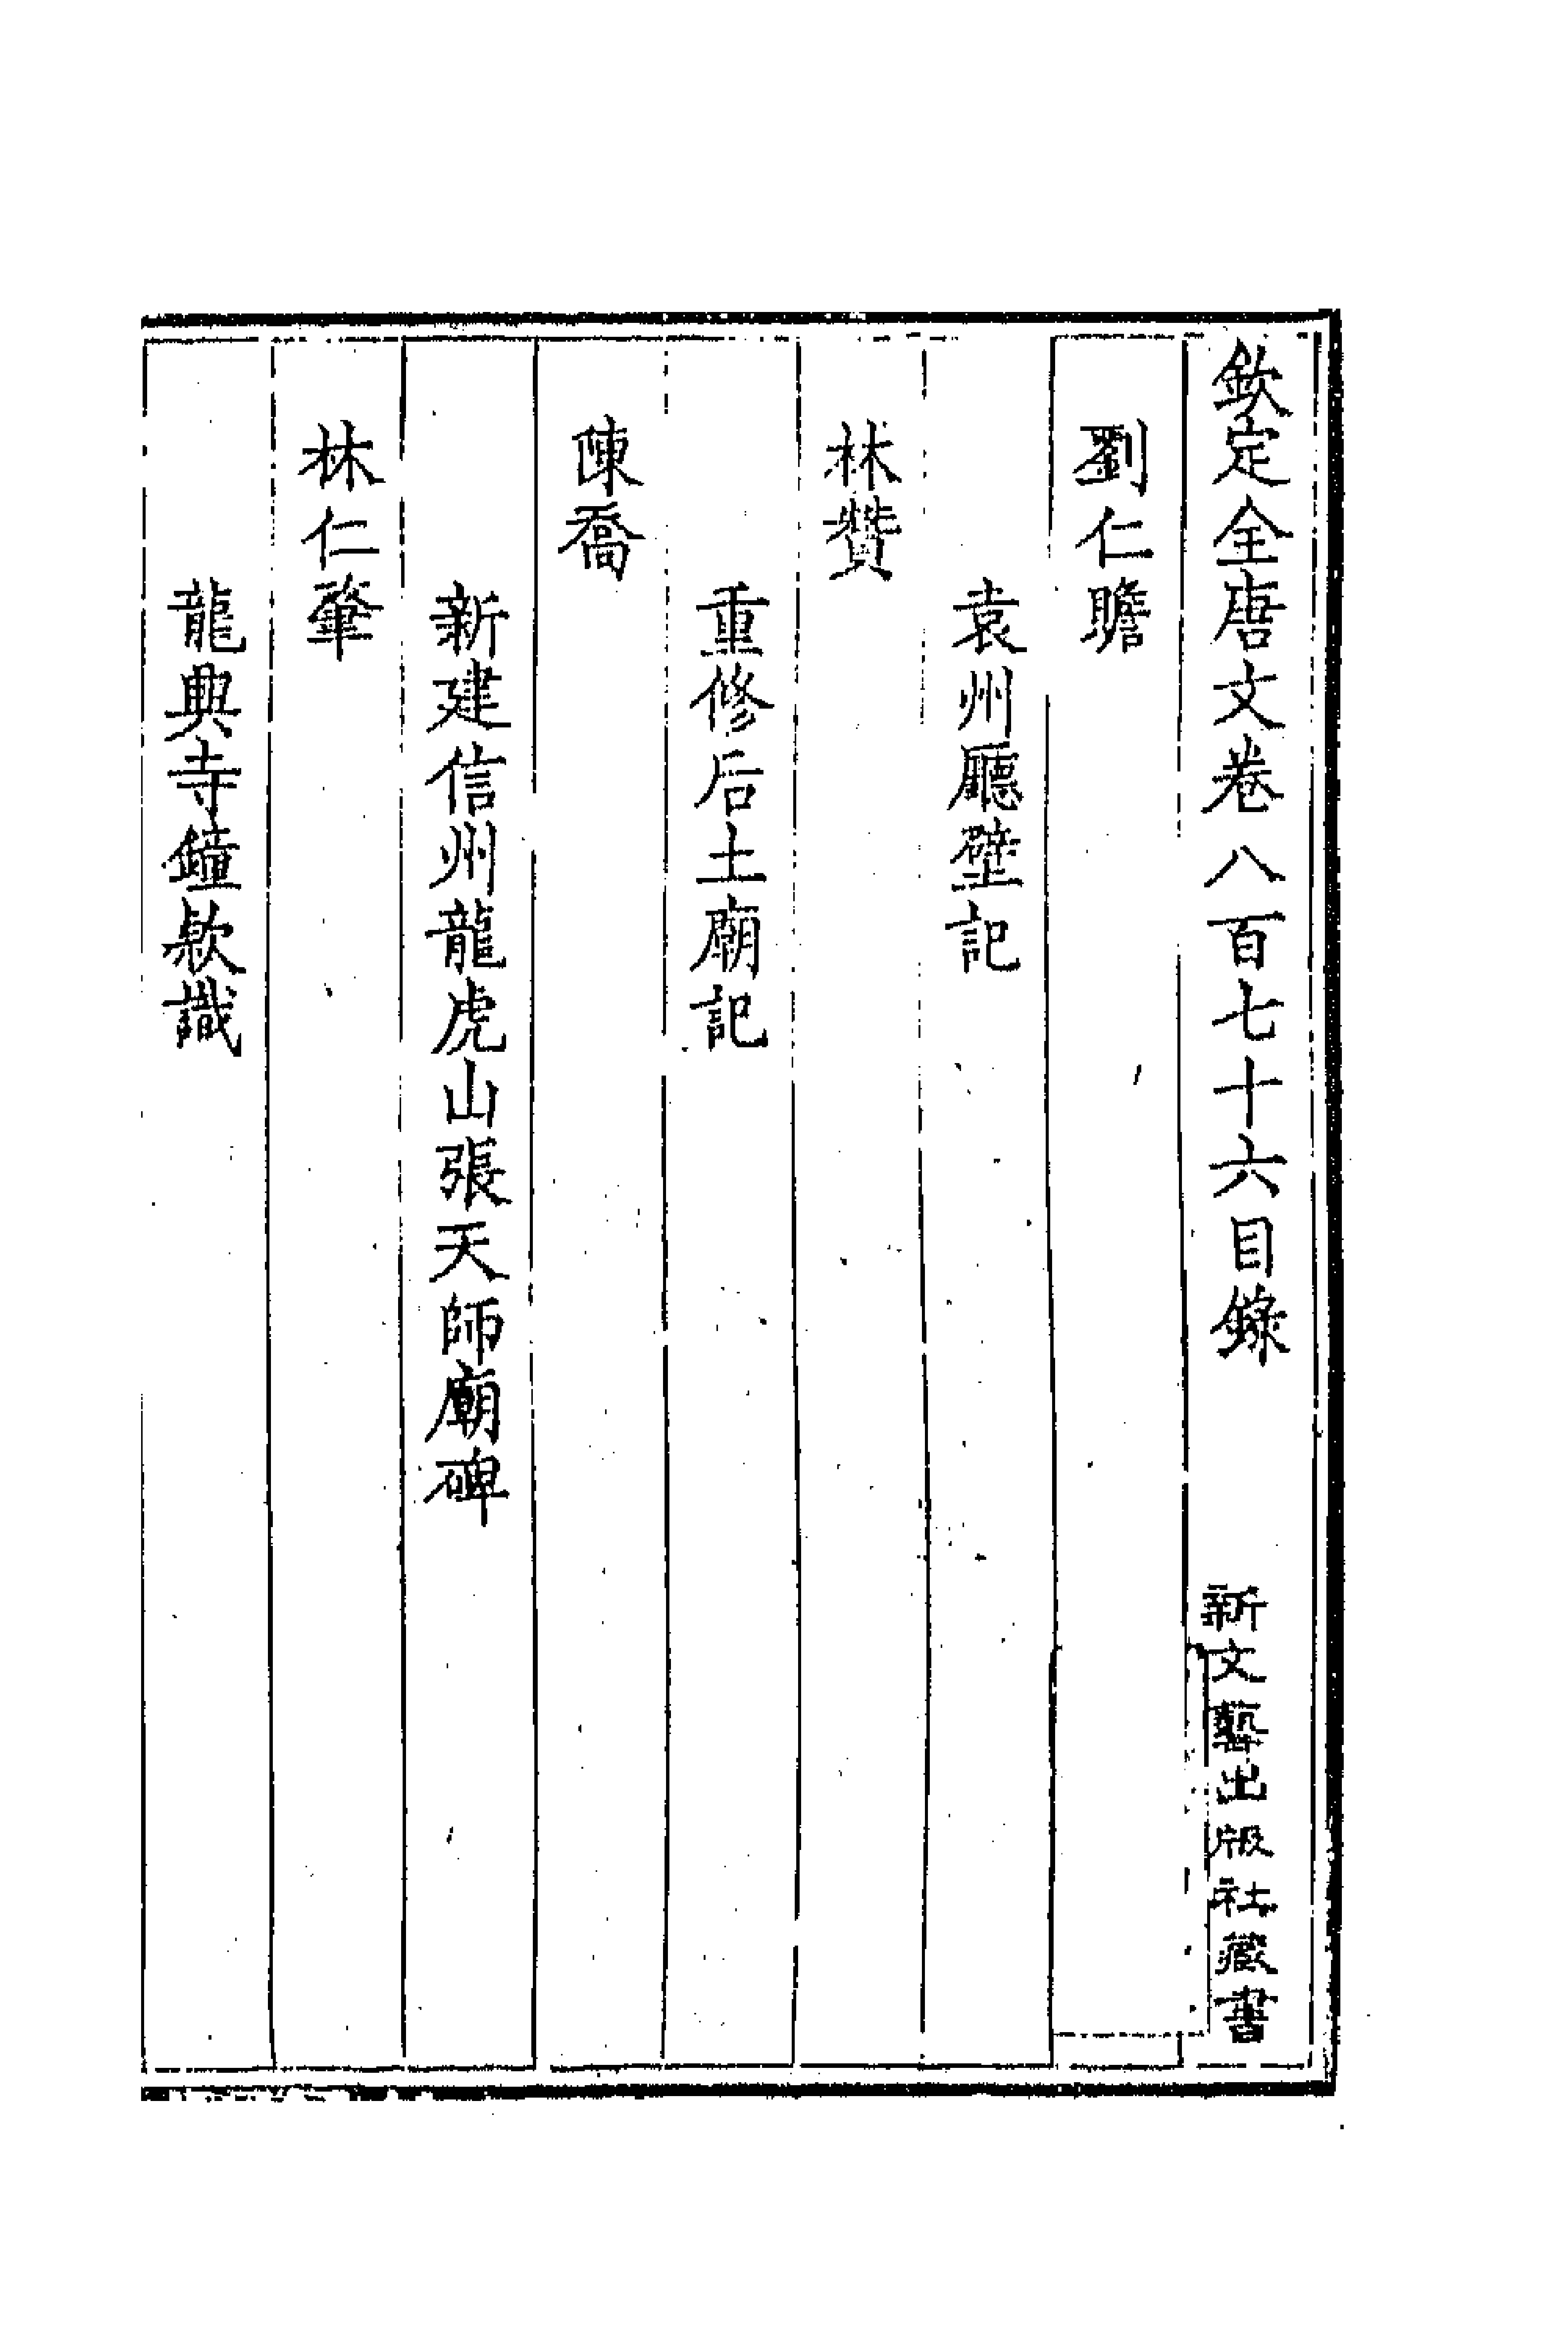 欽定全唐文卷八百七十六目錄
新文藝出版社藏書
劉仁贍
袁州廳壁記
林贊
重修后土廟記
陳喬
新建信州龍虎山張天師廟碑
林仁肇
龍興寺鐘欵識